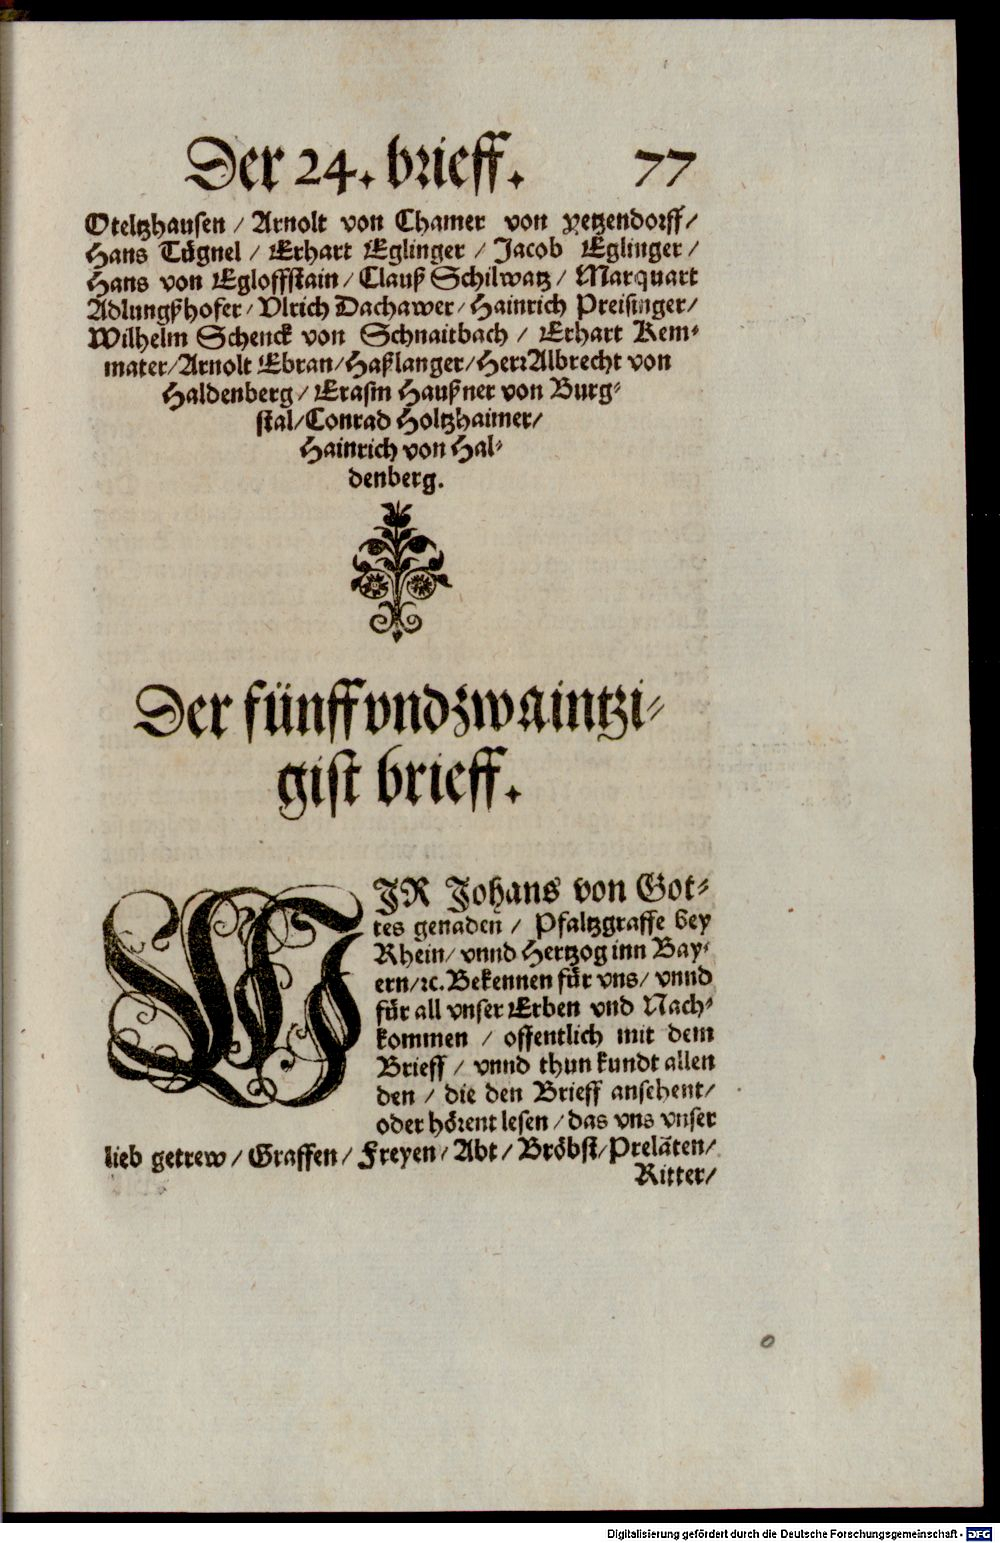 Der 24. brieff. 77
Oteltzhausen / Arnolt von Chamer von Yetzendorff/
Hans Tügnel / Erhart Eglinger / Jacob Eglinger /
Hans von Egloffstain / Clauß Schilwatz / Marquart
Adlungßhofer / Vlrich Dachawer / Hainrich Preisinger/
Wilhelm Schenck von Schnaitbach / Erhart Kem-
mater/Arnolt Ebran/Haßlanger/Herr Albrecht von
Haldenberg / Erasm Haußner von Burg-
stal/Conrad Holtzhaimer/
Hainrich von Hal-
denberg.
Der fünffvndzwaintzi-
gist brieff.
WJR Johans von Got-
tes genaden / Pfaltzgraffe bey
Rhein/ vnnd Hertzog inn Bay-
ern/ꝛc. Bekennen für vns/ vnnd
für all vnser Erben vnd Nach-
kommen / offentlich mit dem
Brieff / vnnd thun kundt allen
den / die den Brieff ansehent/
oder hörent lesen / das vns vnser
lieb getrew / Graffen/ Freyen/ Abt/ Bröbst/Preläten/
Ritter/
Digitalisierung gefördert durch die Deutsche Forschungsgemeinschaft - DFG